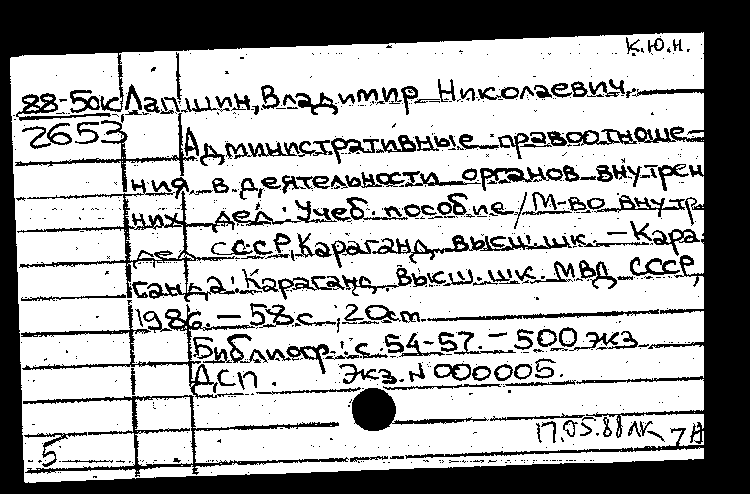 К.Ю.Н.
88-50к Лапшин, Владимир Николаевич.
2653
Административные правоотноше-
ния в деятельности органов внутрен
них дел: Учеб. пособие / М-во внутр.
дел СССР, Караганд. высш. шк. – Кара-
ганда: Караганд. высш. шк. МВД СССР,
1986. – 58 с ; 20 см
Библиогр.: с. 54-57. – 500 экз
ДСП. Экз. N 000005.
17.05.88
5